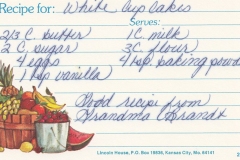 Recipe for: White Cup Cakes
Serves:
2/3 C. butter 1 C. milk
2 C. sugar 3 C flour
4 eggs 4 tsp. baking powder
1 tsp vanilla
Good recipe from
Grandma Brandt
Lincoln House, P.O. Box 19609, Kansas City, Mo. 64141